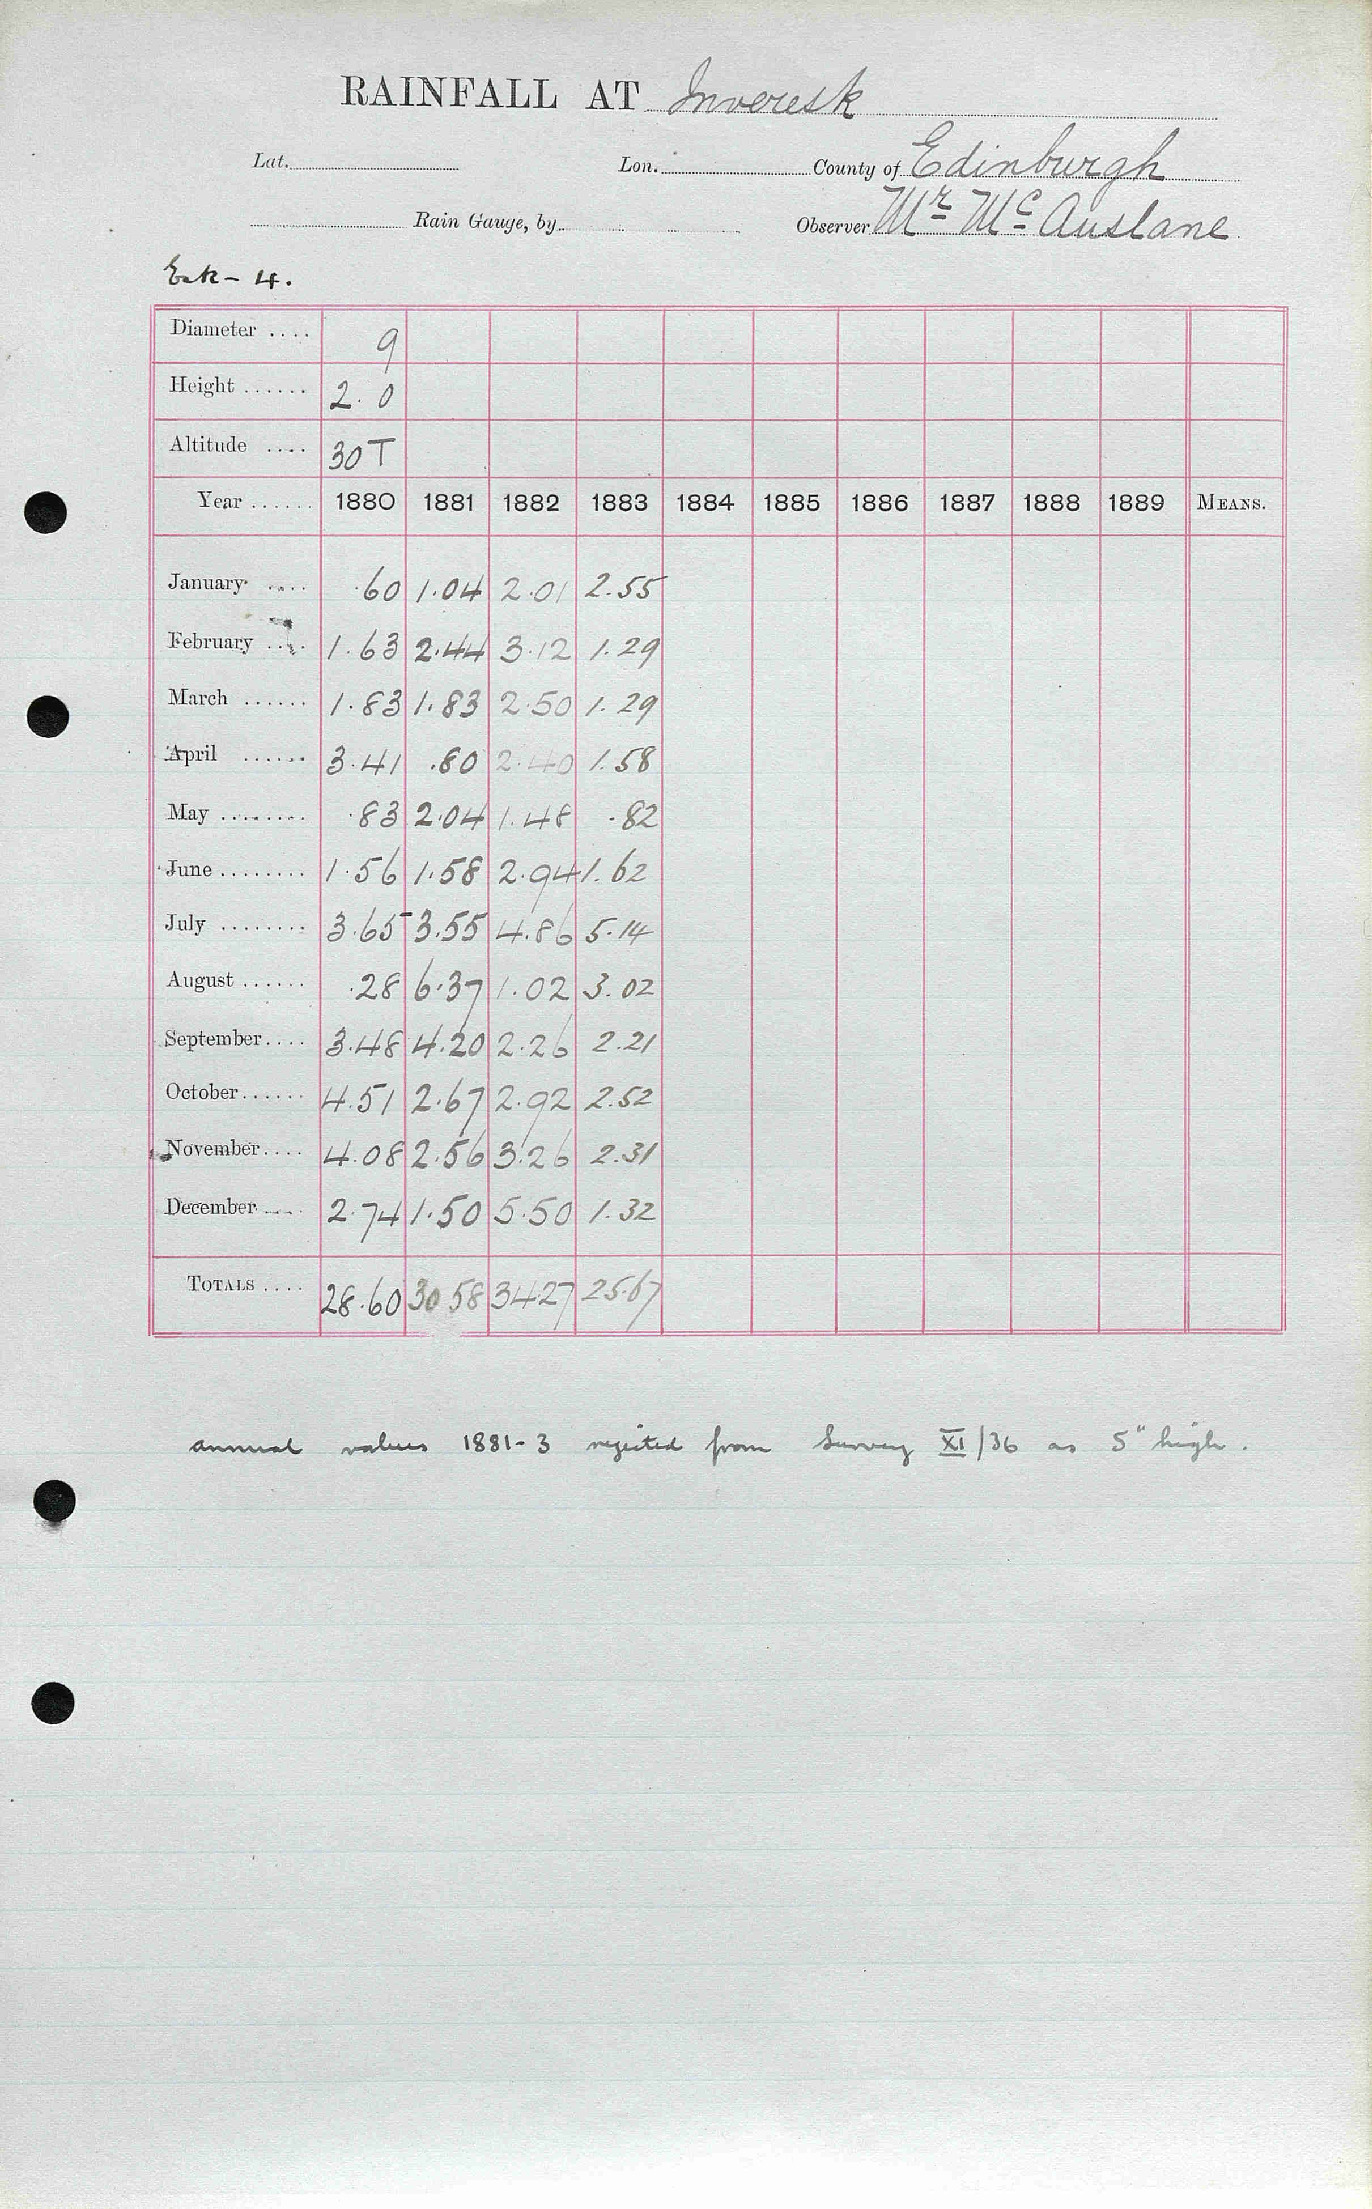 RAINFALL AT Inveresk
Lat. Lon. County of Edinburgh
Rain Gauge, by Observer Mr Mc Auslane
Esk - 4.
Diameter .... 9
Height ...... 2. 0
Altitude .... 30 T
Year ...... 1880 1881 1882 1883 1884 1885 1886 1887 1888 1889 MEANS.
January .... .60 1.04 2.01 2.55
February .... 1.63 2.44 3.12 1.29
March ...... 1.83 1.83 2.50 1.29
April ...... 3.41 .80 2.40 1.58
May ........ .83 2.04 1.48 .82
June ........ 1.56 1.58 2.94 1.62
July ........ 3.65 3.55 4.86 5.14
August ...... .28 6.37 1.02 3.02
September.... 3.48 4.20 2.26 2.21
October...... 4.51 2.67 2.92 2.52
November.... 4.08 2.56 3.26 2.31
December .... 2.74 1.50 5.50 1.32
TOTALS .... 28.60 30 58 34.27 25.67
annual values 1881-3 rejected from Survey XI/36 as 5" high.